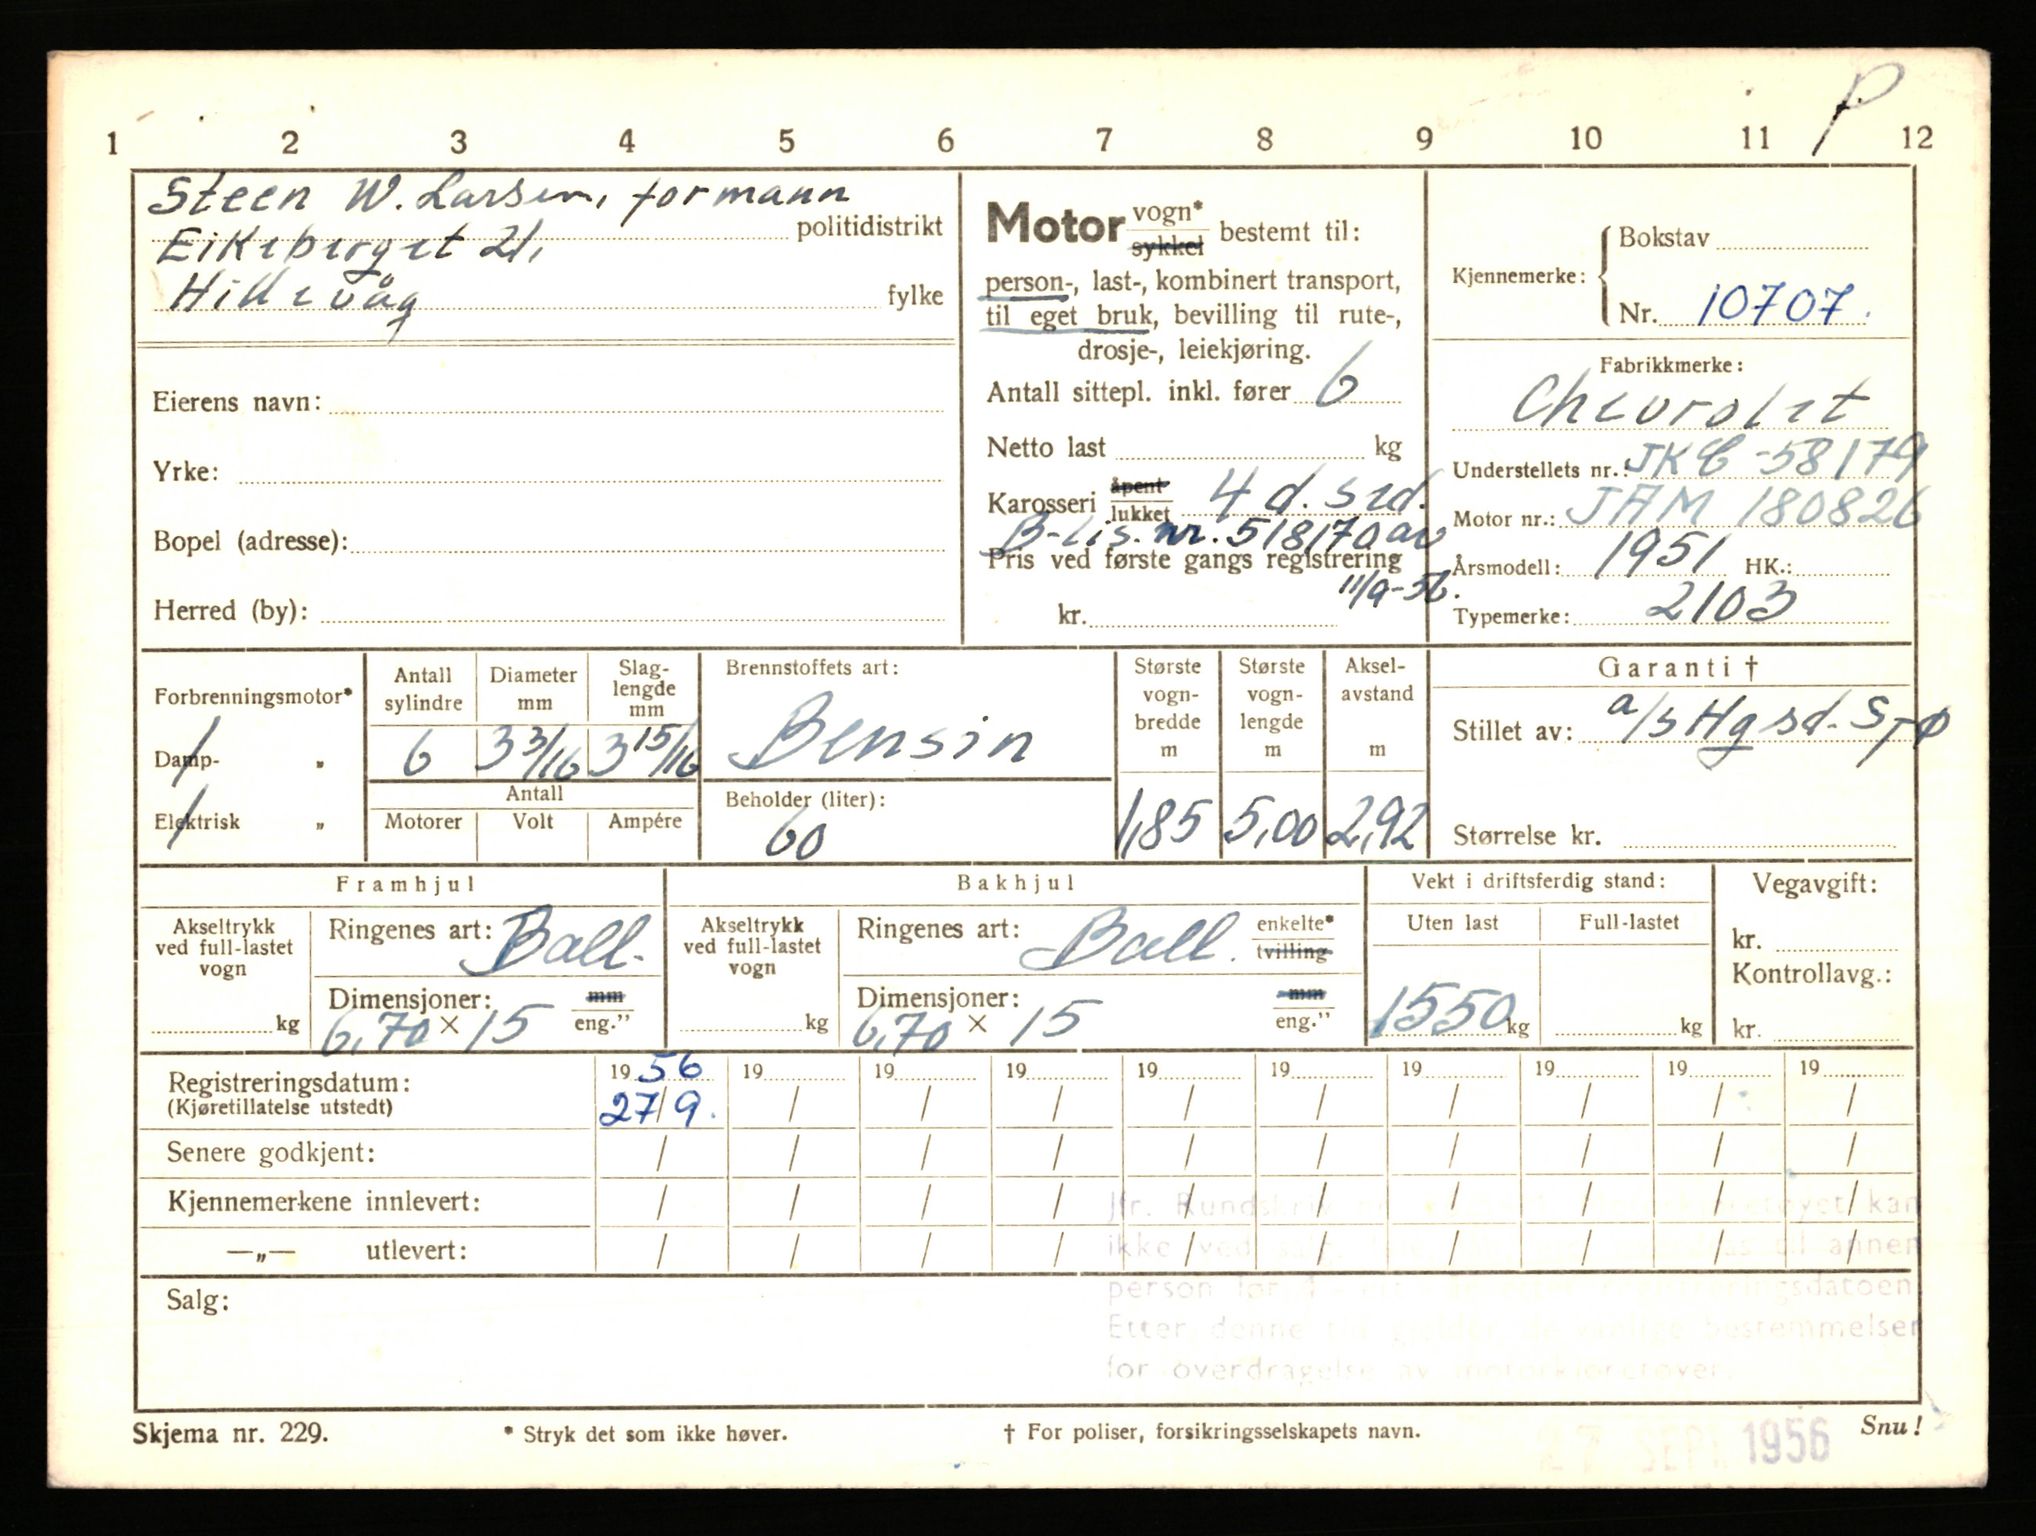 P
1 2 3 4 5 6 7 8 9 10 11 12
Steen W. Larsen, formann
politidistrikt
Eikeberget 21,
Hillevåg
fylke
Eierens navn:
Yrke:
Bopel (adresse):
Herred (by):
Motor vogn* sykkel bestemt til:
person-, last-, kombinert transport,
til eget bruk, bevilling til rute-,
drosje-, leiekjøring.
Antall sittepl. inkl. fører 6
Netto last kg
Karosseri åpent lukket 4 d. sed.
B-lis. nr. 518170 av
Pris ved første gangs registrering
11/9-56.
kr.
Kjennemerke: Bokstav
Nr. 10707.
Fabrikkmerke:
Chevrolet
Understellets nr.: JKC-58179
Motor nr.: JAM 180826
Årsmodell: 1951 HK.:
Typemerke: 2103
Forbrenningsmotor*
Damp- „
Elektrisk „
Antall sylindre
6
Diameter mm
3 3/16
Slag-lengde mm
3 15/16
Antall
Motorer Volt Ampére
Brennstoffets art:
Bensin
Beholder (liter):
60
Største vogn-bredde m
1,85
Største vogn-lengde m
5,00
Aksel-avstand m
2,92
Garanti †
Stillet av: a/s Hgsd. Spø
Størrelse kr.
Framhjul
Akseltrykk ved full-lastet vogn
kg
Ringenes art: Ball.
Dimensjoner: mm
6,70 × 15 eng."
Bakhjul
Akseltrykk ved full-lastet vogn
kg
Ringenes art: Ball. enkelte* tvilling
Dimensjoner: mm
6,70 × 15 eng."
Vekt i driftsferdig stand:
Uten last Full-lastet
1550 kg kg
Vegavgift:
kr.
Kontrollavg.:
kr.
Registreringsdatum: 19 56 19 19 19 19 19 19 19 19 19
(Kjøretillatelse utstedt) 27/9. / / / / / / / / /
Senere godkjent: / / / / / / / / / /
Kjennemerkene innlevert: / / / / / / / / / /
—„— utlevert: / / / / / / / / / /
Jfr. Rundskriv kan
ikke ved salg til annen
person før registreringsdatoen.
Etter denne tid gjelder de vanlige bestemmelser
for overdragelse av motorkjøretøyer.
Salg:
Skjema nr. 229.
* Stryk det som ikke høver.
† For poliser, forsikringsselskapets navn.
27 SEPT. 1956
Snu!